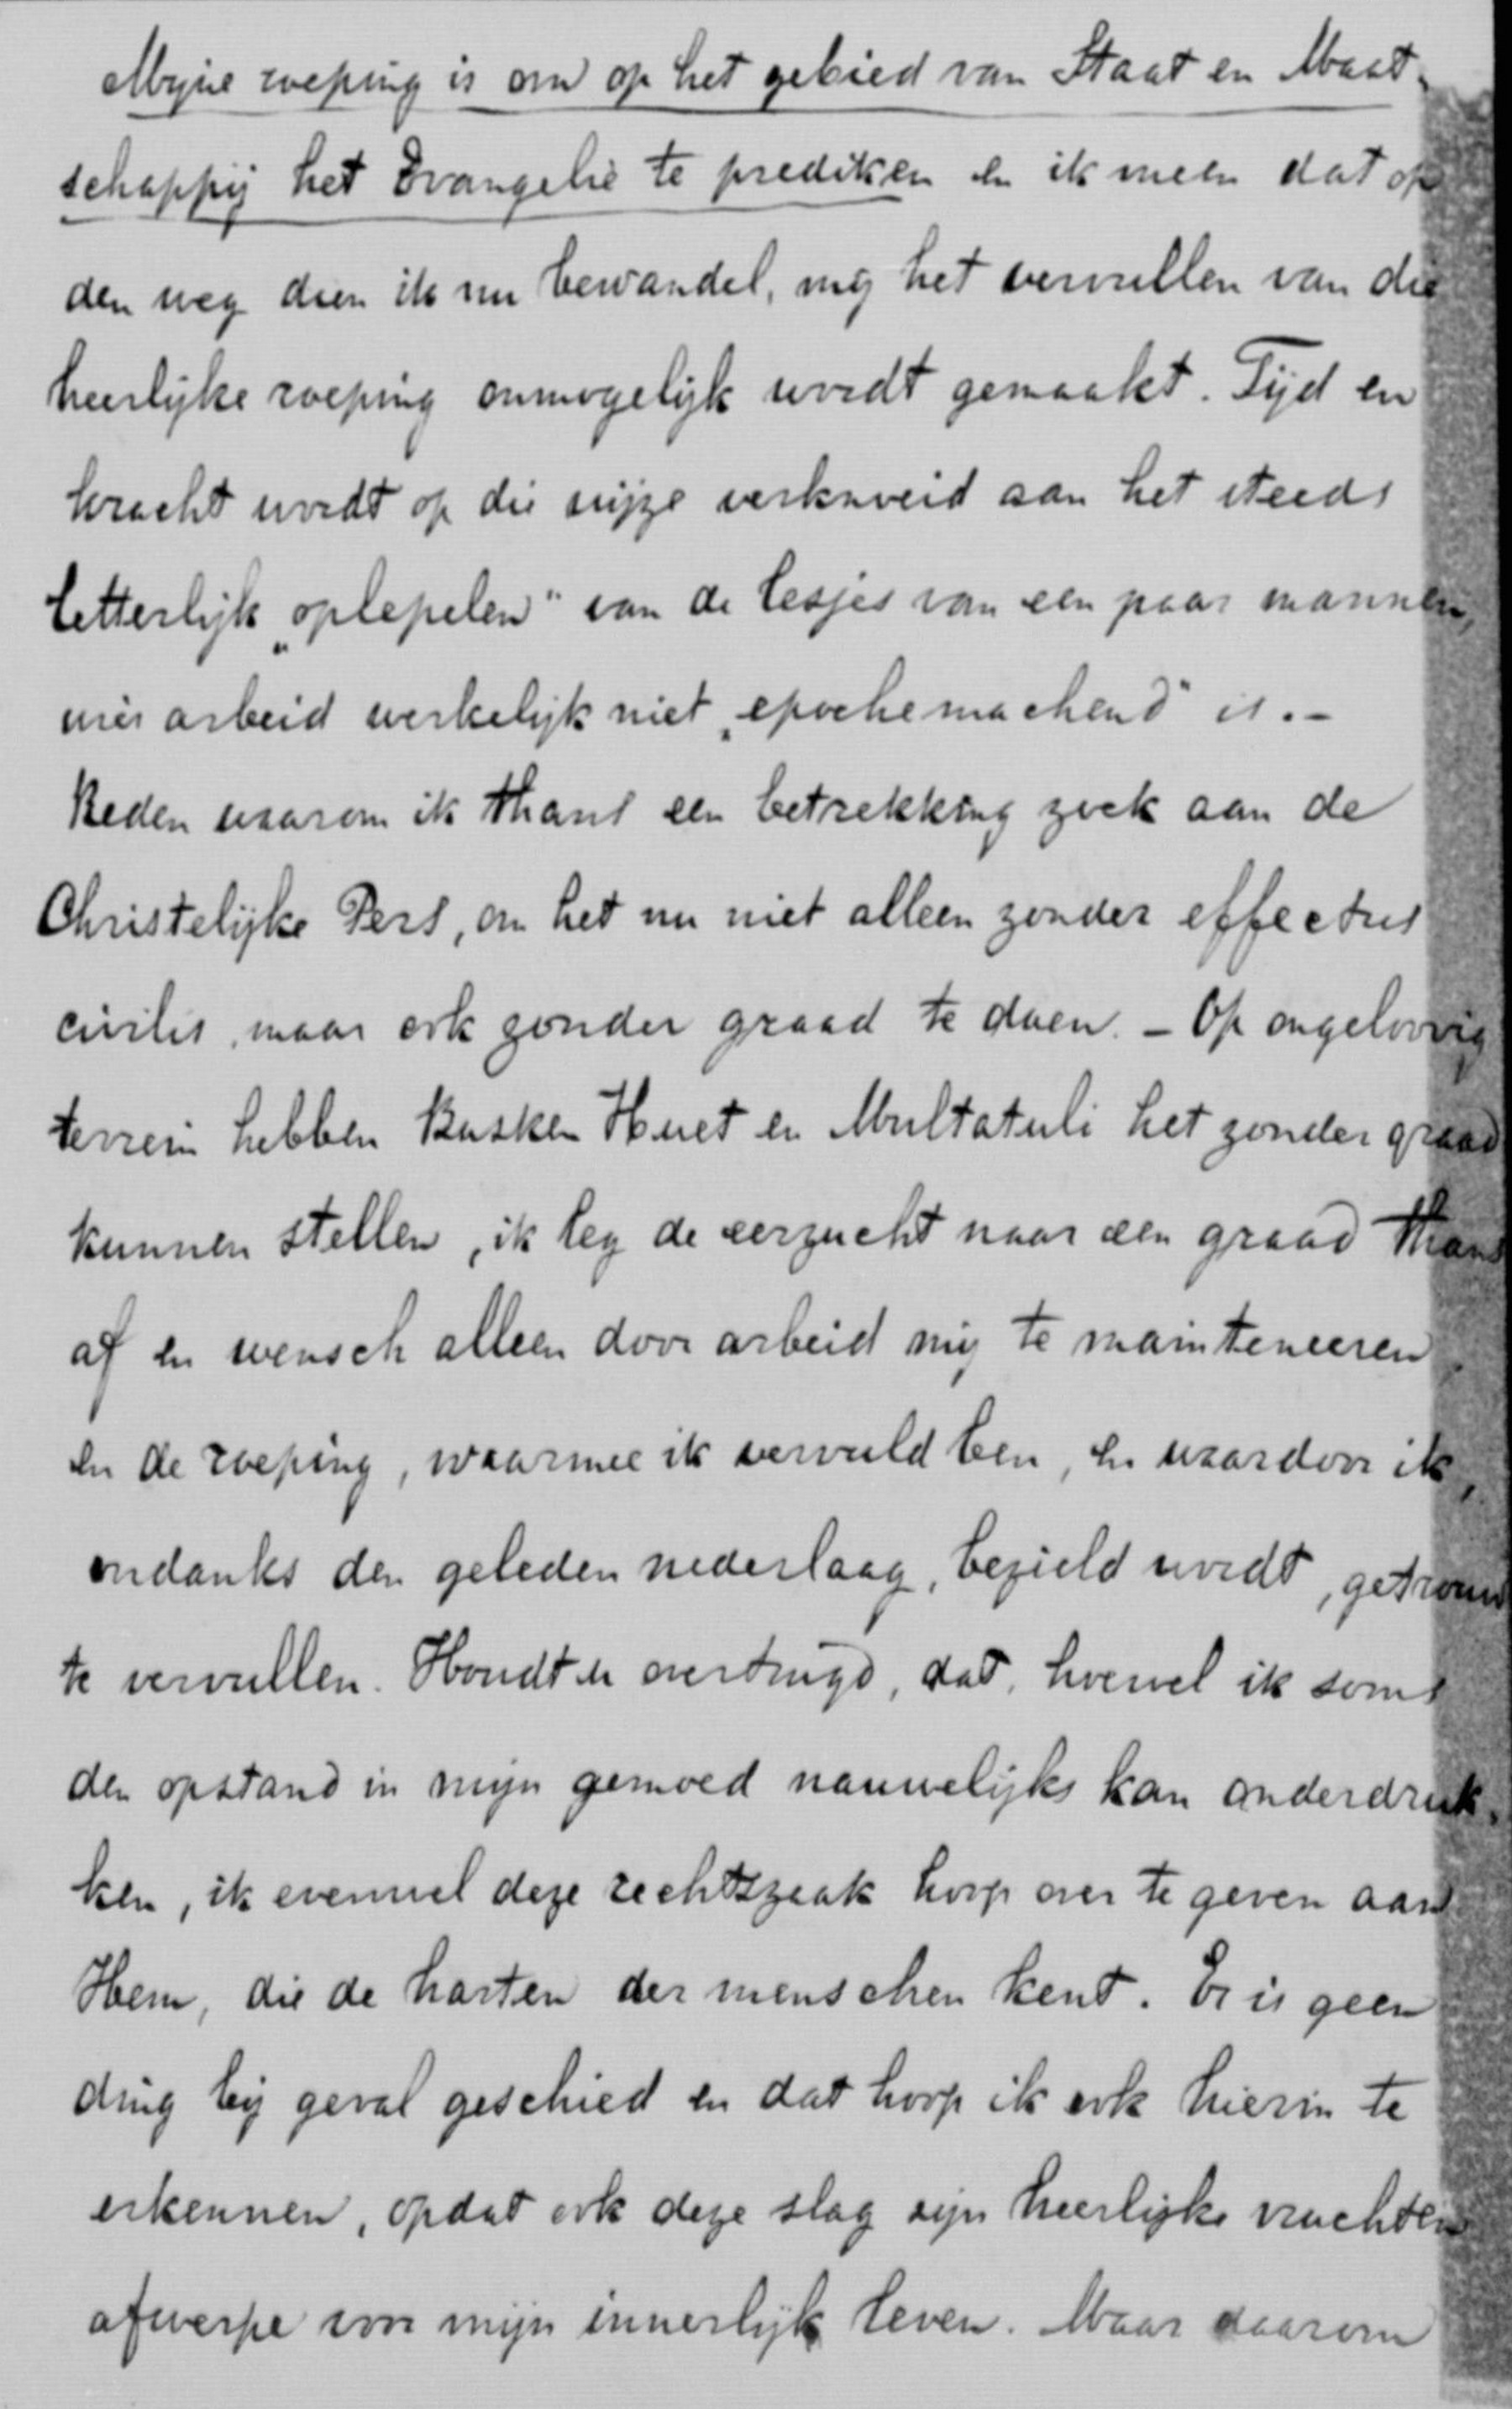 Mijne roeping is om op het gebied van Staat en Maat-
schappij het Evangelie te prediken en ik meen dat op
den weg dien ik nu bewandel, mij het vervullen van die
heerlijke roeping onmogelijk wordt gemaakt. Tijd en
kracht wordt op die wijze verknoeid aan het steeds
letterlijk „oplepelen" van de lesjes van een paar mannen,
wier arbeid werkelijk niet „epochemachend" is. –
Reden waarom ik thans een betrekking zoek aan de
Christelijke Pers, om het nu niet alleen zonder effectus
civilis, maar ook zonder graad te doen. – Op ongeloovig
terrein hebben Busken Huet en Multatuli het zonder graad
kunnen stellen, ik leg de eerzucht naar een graad thans
af en wensch alleen door arbeid mij te mainteneeren,
en de roeping, waarmee ik vervuld ben, en waardoor ik,
ondanks den geleden nederlaag, bezield wordt, getrouw
te vervullen. Houdt u overtuigd, dat, hoewel ik soms
den opstand in mijn gemoed nauwelijks kan onderdruk-
ken, ik evenwel deze rechtszaak hoop over te geven aan
Hem, die de harten der menschen kent. Er is geen
ding bij geval geschied en dat hoop ik ook hierin te
erkennen, opdat ook deze slag zijn heerlijke vruchten
afwerpe voor mijn innerlijk leven. Maar daarom